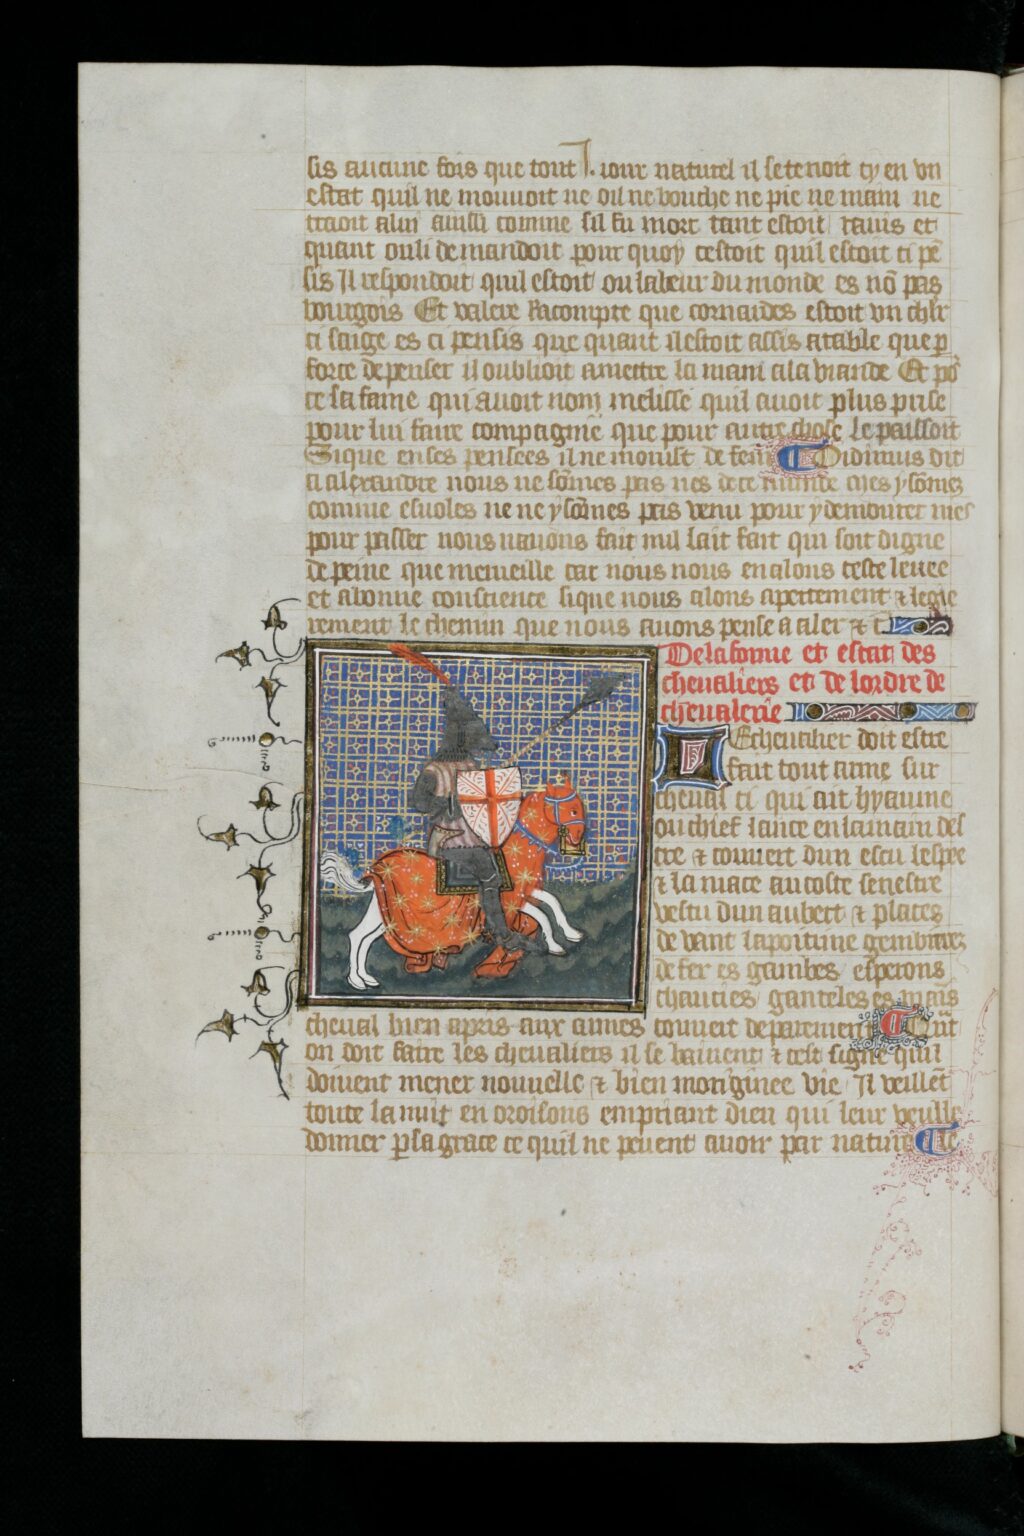 sis aucune fois que tout .I. iour naturel il se tenoit cy en vn
estat quil ne mouuoit ne oil ne bouche ne pie ne main ne
traoit a lui aussi comme sil fu mort tant estoit rauis et
quant on li demandoit pour quoy cestoit quil estoit ci pē
sis Il respondoit quil estoit ou labeur du monde es nō pas
bourgois Et valere Racompte que carnaides estoit vn chlr
si saige es ci pensis que quant il estoit assis a table que p
force de penser il oublioit a mettre la main a la viande Et po
ce sa fame qui auoit nom melisse quil auoit plus prise
pour lui faire compagnie que pour autre chose le paissoit
Si que en ses pensees il ne morust de fein Didimus dit
a alexandre nous ne sōmes pas nes de ce munde mes y sōmes
comme esuoles ne ne y sōmes pas venu pour y demourer mes
pour passer nous nauons fait nul lait fait qui soit digne
de peine que merueille car nous nous en alons teste leuee
et a bonne conscience si que nous alons apertement & legie
rement le chemin que nous auons pense a aler & c
De la forme et estat des
cheualiers et de lordre de
cheualerie
Le cheualier doit estre
fait tout arme sur
cheual ci qui ait hyaume
ou chief lance en la main des
tre & couuert dun escu lespee
& la mace au coste senestre
vestu dun aubert & plates
de vant la poitrine gembieres
de fer es gambes esperons
chaucies ganteles es mains
cheual bien apris aux armes couuert de parement Quāt
on doit faire les cheualiers il se bainent & cest signe quil
doiuent mener nouuelle & bien moriginee vie Il veillēt
toute la nuit en oroisons empriant dieu qui leur veulle
donner p sa grace ce quil ne peuent auoir par nature Le